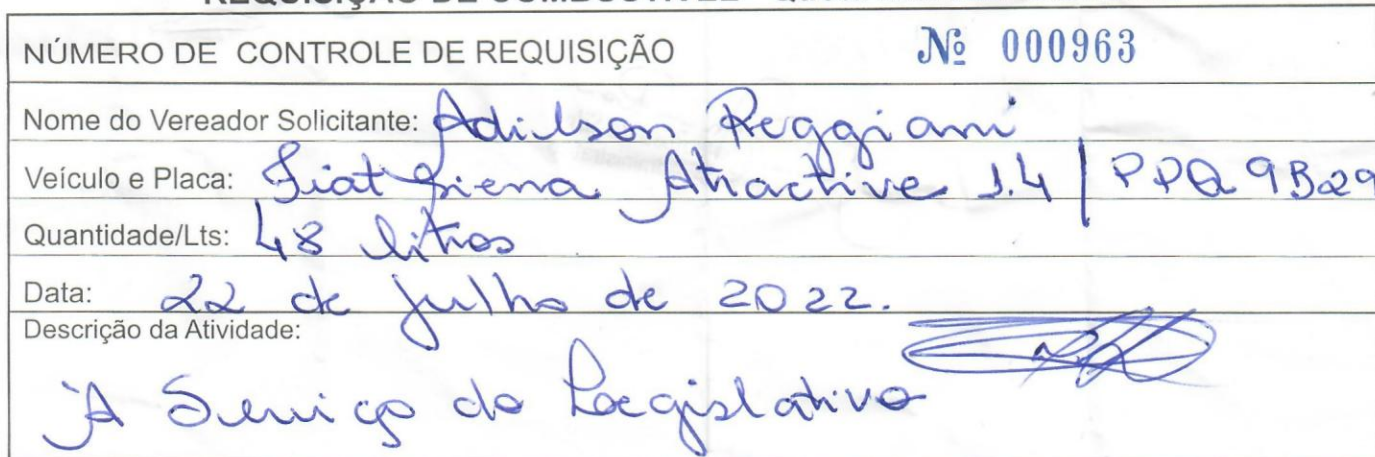 REQUISIÇÃO DE COMBUSTÍVEL
NÚMERO DE CONTROLE DE REQUISIÇÃO Nº 000963
Nome do Vereador Solicitante: Adilson Reggiani
Veículo e Placa: Fiat Siena Atractive 1.4 | PPQ 9B29
Quantidade/Lts: 48 litros
Data: 22 de julho de 2022.
Descrição da Atividade:
À Serviço do Legislativo